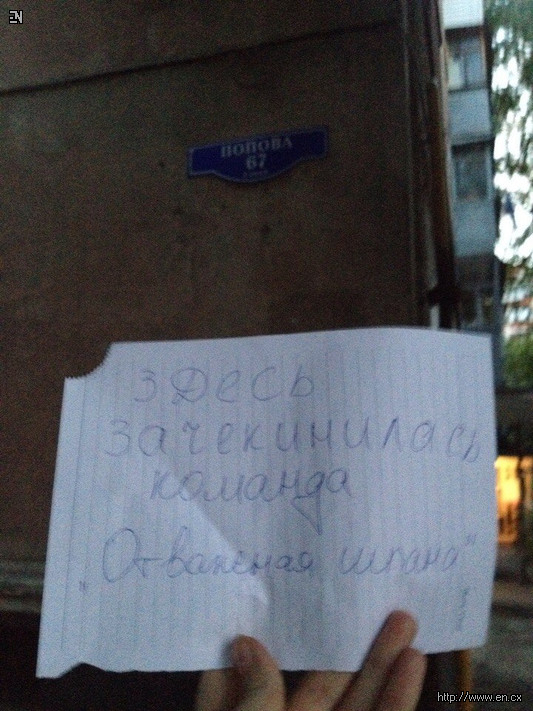 EN
ПОПОВА
67
здесь
зачекинилась
команда
„Отважная шпана"
http://www.en.cx